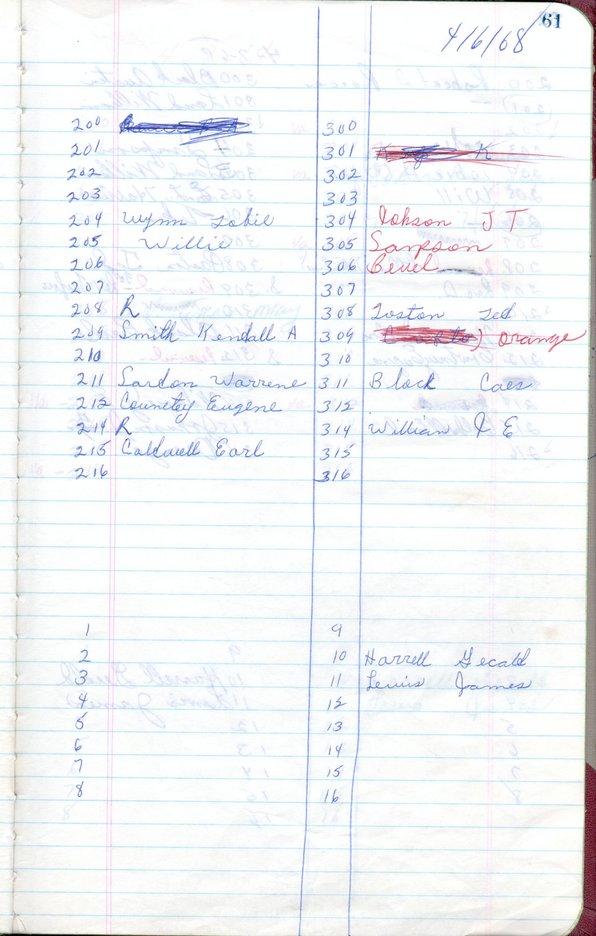 61
4/6/68
200 300
201 301 K
202 302
203 303
204 Wynn Tobie 304 Dobson J T
205 Willie 305 Sampson
206 306 Bevel
207 307
208 R 308 Toston Ted
209 Smith Kendall A 309 ) orange
210 310
211 Lardon Warrene 311 Block Caes
212 Counetey Eugene 312
214 R 314 William J E
215 Caldwell Earl 315
216 316
1 9
2 10 Harrell Gerald
3 11 Lewis James
4 12
5 13
6 14
7 15
8 16